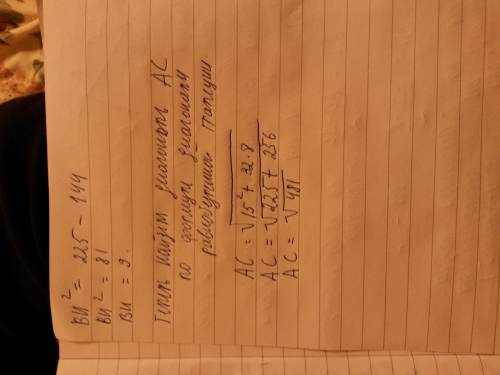 BH² = 225 - 144
BH² = 81
BH = 9.
Теперь найдём диагональ AC
по формуле диагонали
равнобедренной трапеции.
AC = √15² + 32 · 8
AC = √225 + 256
AC = √481